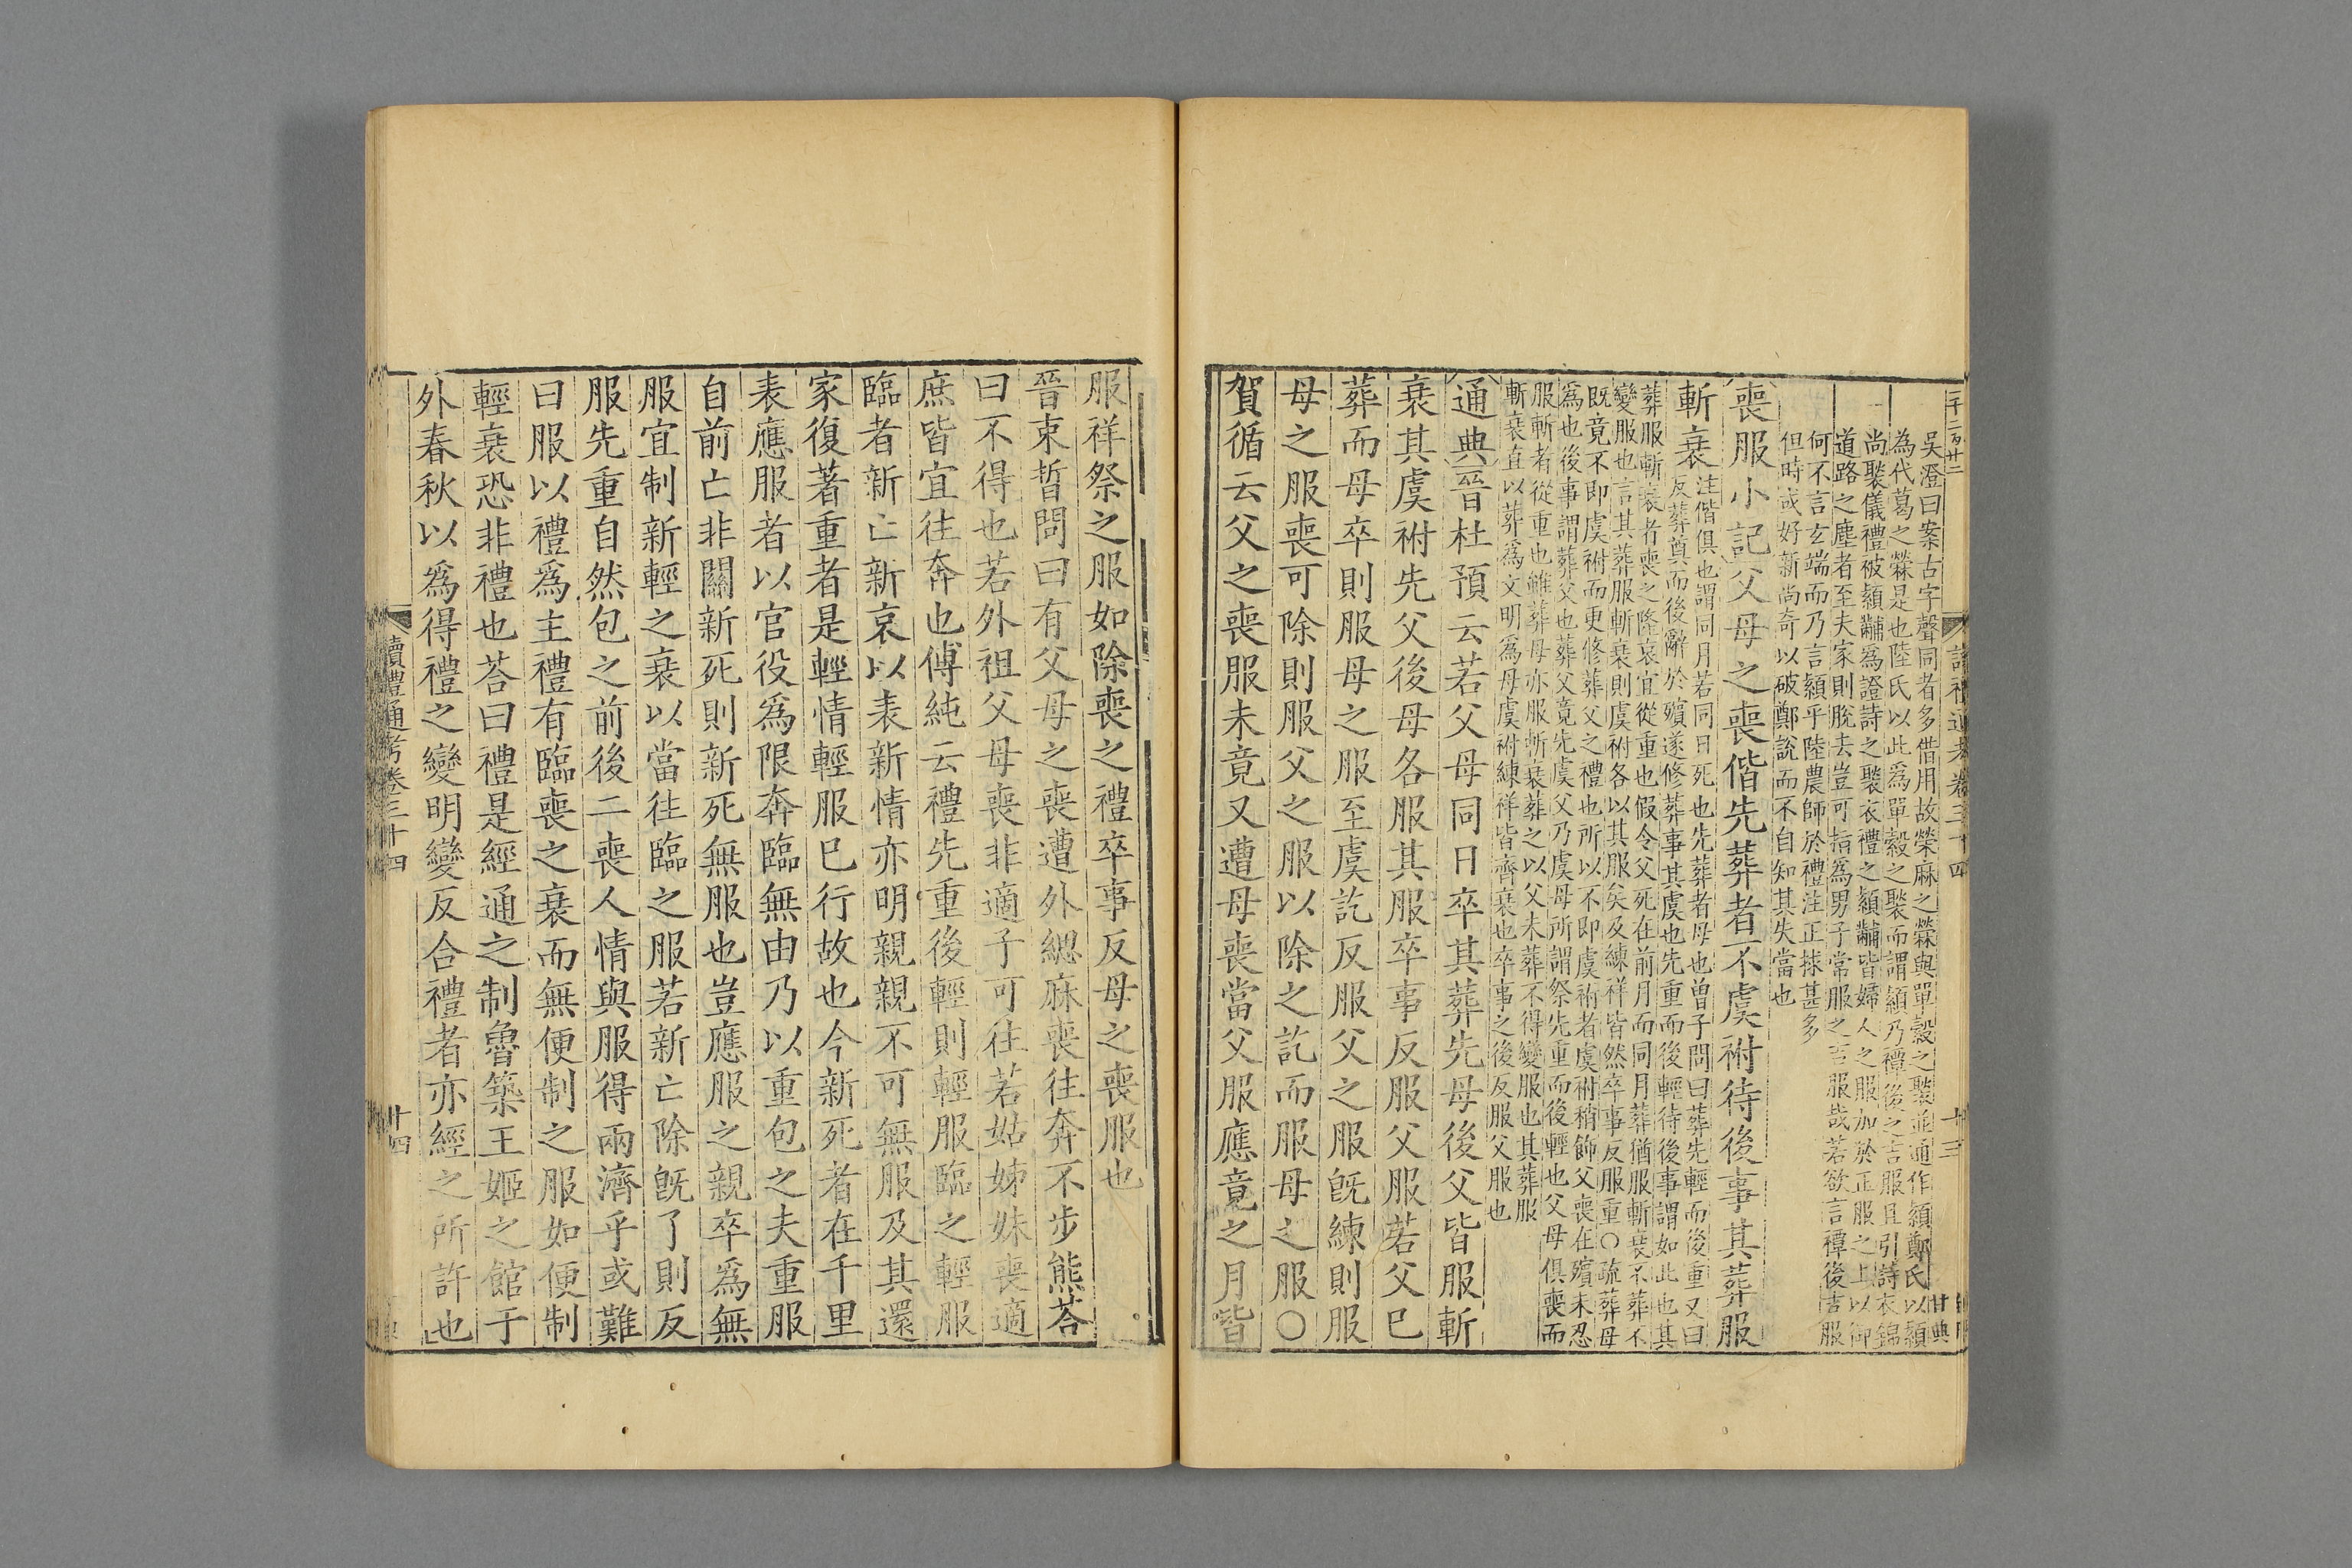 吳澄曰案古字聲同者多借用故檾麻之檾與單縠之褧並通作潁鄭氏以潁
為代葛之檾是也陸氏以此爲單縠之褧而謂潁乃禫後之吉服且引詩衣錦
尚褧儀禮被潁黼爲證詩之褧衣禮之潁黼皆婦人之服加於正服之上以御
道路之塵者至夫家則脫去豈可指爲男子常服之吉服哉若欲言禫後吉服
何不言玄端而乃言潁乎陸農師於禮注正捄甚多
但時或好新尚奇以破鄭說而不自知其失當也
喪服小記父母之喪偕先葬者不虞祔待後事其葬服
斬衰
注偕俱也謂同月若同日死也先葬者母也曾子問曰葬先輕而後重又曰
反葬奠而後辭於殯遂修葬事其虞也先重而後輕待後事謂如此也其
葬服斬衰者喪之隆哀宜從重也假令父死在前月而同月葬猶服斬衰不葬不
變服也言其葬服斬衰則虞祔各以其服矣及練祥皆然卒事反服重○疏葬母
既竟不即虞祔而更修葬父之禮也所以不即虞祔者虞祔稍飾父喪在殯未忍
爲也後事謂葬父也葬父竟先虞父乃虞母所謂祭先重而後輕也父母俱喪而
服斬者從重也雖葬母亦服斬衰葬之以父未葬不得變服也其葬服
斬衰直以葬爲文明爲母虞祔練祥皆齊衰也卒事之後反服父服也
通典晉杜預云若父母同日卒其葬先母後父皆服斬
衰其虞祔先父後母各服其服卒事反服父服若父已
葬而母卒則服母之服至虞訖反服父之服旣練則服
母之服喪可除則服父之服以除之訖而服母之服○
賀循云父之喪服未竟又遭母喪當父服應竟之月皆
服祥祭之服如除喪之禮卒事反母之喪服也
晉束晳問曰有父母之喪遭外緦麻喪往奔不步熊荅
曰不得也若外祖父母喪非適子可往若姑姊妹喪適
庶皆宜往奔也傅純云禮先重後輕則輕服臨之輕服
臨者新亡新哀以表新情亦明親親不可無服及其還
家復著重者是輕情輕服已行故也今新死者在千里
表應服者以官役爲限奔臨無由乃以重包之夫重服
自前亡非關新死則新死無服也豈應服之親卒爲無
服宜制新輕之衰以當往臨之服若新亡除旣了則反
服先重自然包之前後二喪人情與服得兩濟乎或難
曰服以禮爲主禮有臨喪之衰而無便制之服如便制
輕衰恐非禮也荅曰禮是經通之制魯築王姬之館于
外春秋以爲得禮之變明變反合禮者亦經之所許也
讀禮通考卷三十四
廿四